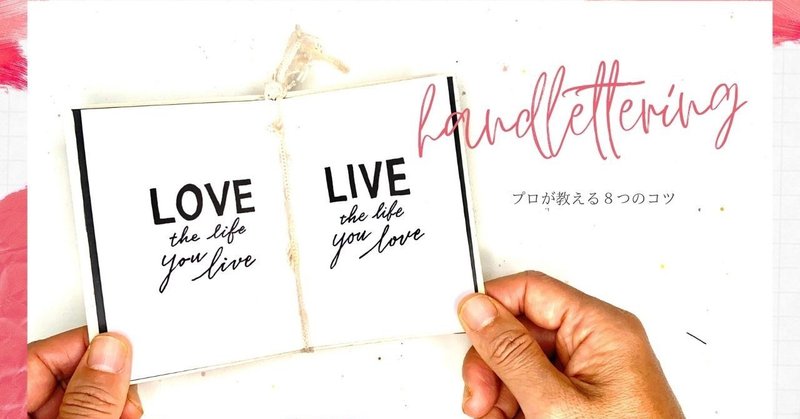 LOVE
the life
you live
LIVE
the life
you love
handlettering
プロが教える８つのコツ